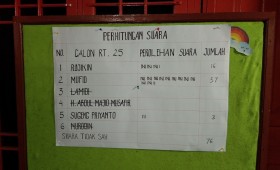 PERHITUNGAN SUARA
NO. CALON RT. 25 PEROLEHAN SUARA JUMLAH
1 RODIKIN 16
2 MOFID 57
3 LAMIDI
4 H. ABDUL MAJID MUSAFIR
5 SUGENG PRIYANTO 3
6 NURUDIN
SUARA TIDAK SAH
76